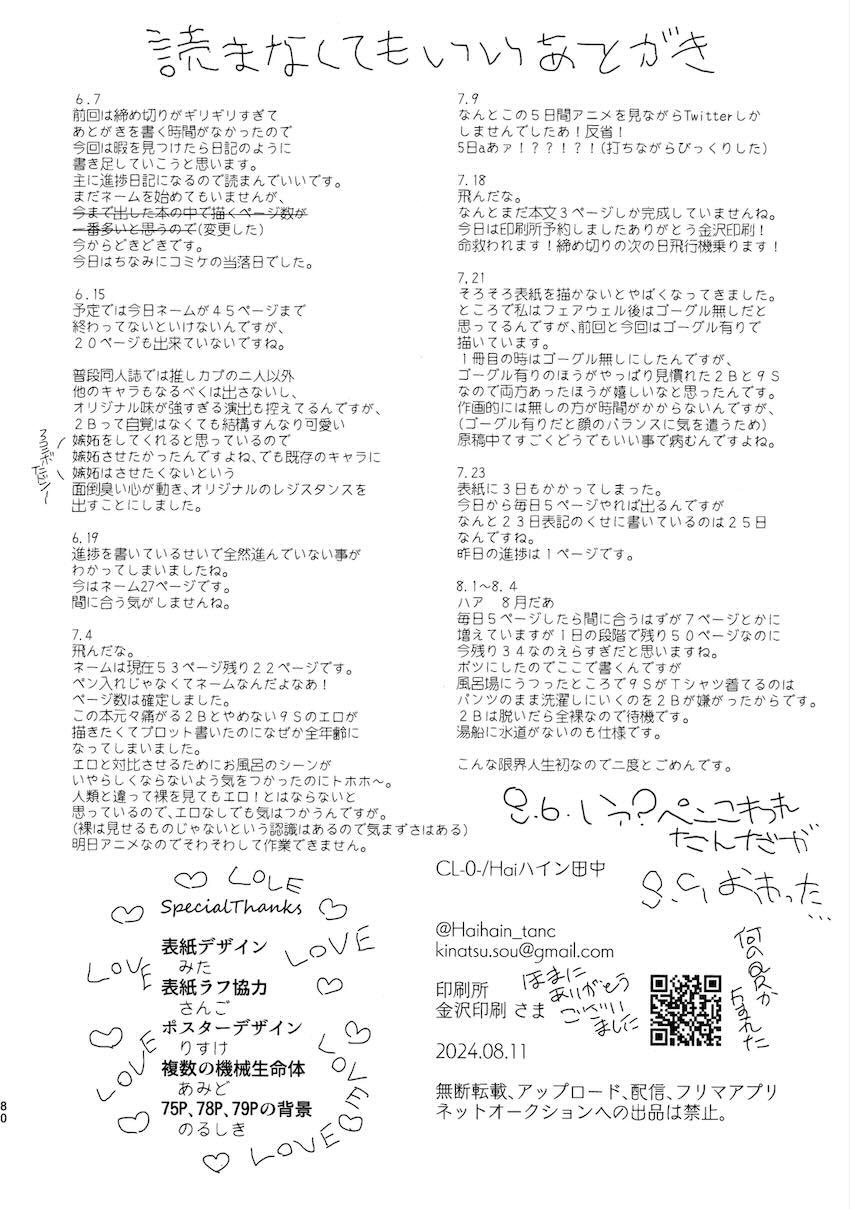 読まなくてもいいあとがき
6.7
前回は締め切りがギリギリすぎて
あとがきを書く時間がなかったので
今回は暇を見つけたら日記のように
書き足していこうと思います。
主に進捗日記になるので読まんでいいです。
まだネームを始めてもいませんが、
今まで出した本の中で描くページ数が
一番多いと思うので(変更した)
今からどきどきです。
今日はちなみにコミケの当落日でした。
6.15
予定では今日ネームが45ページまで
終わってないといけないんですが、
20ページも出来ていないですね。
普段同人誌では推しカプの二人以外
他のキャラもなるべくは出さないし、
オリジナル味が強すぎる演出も控えてるんですが、
2Bって自覚はなくても結構すんなり可愛い
嫉妬をしてくれると思っているので
嫉妬させたかったんですよね、でも既存のキャラに
嫉妬はさせたくないという
面倒臭い心が動き、オリジナルのレジスタンスを
出すことにしました。
6.19
進捗を書いているせいで全然進んでいない事が
わかってしまいましたね。
今はネーム27ページです。
間に合う気がしませんね。
7.4
飛んだな。
ネームは現在53ページ残り22ページです。
ペン入れじゃなくてネームなんだよなあ!
ページ数は確定しました。
この本元々痛がる2Bとやめない9Sのエロが
描きたくてプロット書いたのになぜか全年齢に
なってしまいました。
エロと対比させるためにお風呂のシーンが
いやらしくならないよう気をつかったのにトホホ〜。
人類と違って裸を見てもエロ!とはならないと
思っているので、エロなしでも気はつかうんですが。
(裸は見せるものじゃないという認識はあるので気まずさはある)
明日アニメなのでそわそわして作業できません。
LOLE
SpecialThanks
LOVE
LOVE
表紙デザイン
みた
表紙ラフ協力
さんご
ポスターデザイン
りすけ
複数の機械生命体
あみど
75P、78P、79Pの背景
のるしき
LOVE
LOVE
LOVE
7.9
なんとこの5日間アニメを見ながらTwitterしか
しませんでしたあ!反省!
5日aあァ!??!?!(打ちながらびっくりした)
7.18
飛んだな。
なんとまだ本文3ページしか完成していませんね。
今日は印刷所予約しましたありがとう金沢印刷!
命救われます!締め切りの次の日飛行機乗ります!
7,21
そろそろ表紙を描かないとやばくなってきました。
ところで私はフェアウェル後はゴーグル無しだと
思ってるんですが、前回と今回はゴーグル有りで
描いています。
1冊目の時はゴーグル無しにしたんですが、
ゴーグル有りのほうがやっぱり見慣れた2Bと9S
なので両方あったほうが嬉しいなと思ったんです。
作画的には無しの方が時間がかからないんですが、
(ゴーグル有りだと顔のバランスに気を遣うため)
原稿中てすごくどうでもいい事で病むんですよね。
7.23
表紙に3日もかかってしまった。
今日から毎日5ページやれば出るんですが
なんと23日表記のくせに書いているのは25日
なんですね。
昨日の進捗は1ページです。
8.1〜8.4
ハア 8月だあ
毎日5ページしたら間に合うはずが7ページとかに
増えていますが1日の段階で残り50ページなのに
今残り34なのえらすぎだと思いますね。
ボツにしたのでここで書くんですが
風呂場にうつったところで9SがTシャツ着てるのは
パンツのまま洗濯しにいくのを2Bが嫌がったからです。
2Bは脱いだら全裸なので待機です。
湯船に水道がないのも仕様です。
こんな限界人生初なので二度とごめんです。
8.6.いつ?ペンこわれ
たんだが
8.9おわった…
CL-0-/Haiハイン田中
@Haihain_tanc
kinatsu.sou@gmail.com
印刷所
金沢印刷 さま
ほまに
ありがとう
ございい
ました
何のQRか
わすれた
2024.08.11
無断転載、アップロード、配信、フリマアプリ
ネットオークションへの出品は禁止。
80